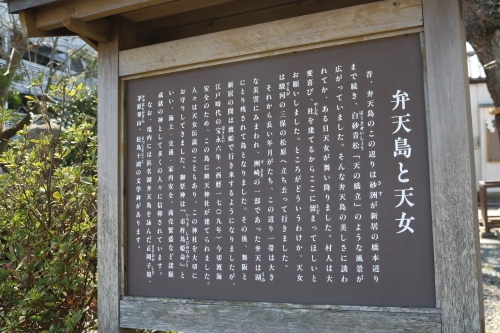 弁天島と天女
昔、弁天島のこの辺りは砂洲が新居の橋本辺り
まで続き、白砂青松「天の橋立」のような風景が
広がっていました。そんな弁天島の美しさに誘わ
れてか、ある日天女が舞い降りました。村人は大
変喜び、社を建てるからここに留まってほしいと
お願いしました。ところがどういうわけか、天女
は駿河の三保の松原へ立ち去って行きました。
それから長い年月がたち、この辺り一帯は大き
な災害にみまわれ、洲崎の一部であった弁天は湖
にとり残されて島となりました。その後、舞阪と
新居の間は渡船で行き来するようになりましたが、
江戸時代の宝永六年（西暦一七〇九年）今切渡海
安全のため、この島に弁天神社が建てられました。
人々は天女伝説のこともあり、この神社を大切に
お守りしてきました。御祭神は「市杵島姫命」と
いい、海上、交通、家内安全、商売繁盛など諸願
成就の神として多くの人々に信仰されています。
なお、境内には浜名湖弁天島を詠んだ正岡子規、
茅原華山、松島十湖の文学碑があります。